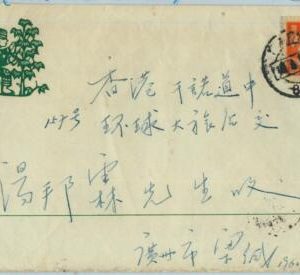 香港 干諾道中
號 环球大旅店交
湯邦霖先生收
廣州市梁緘